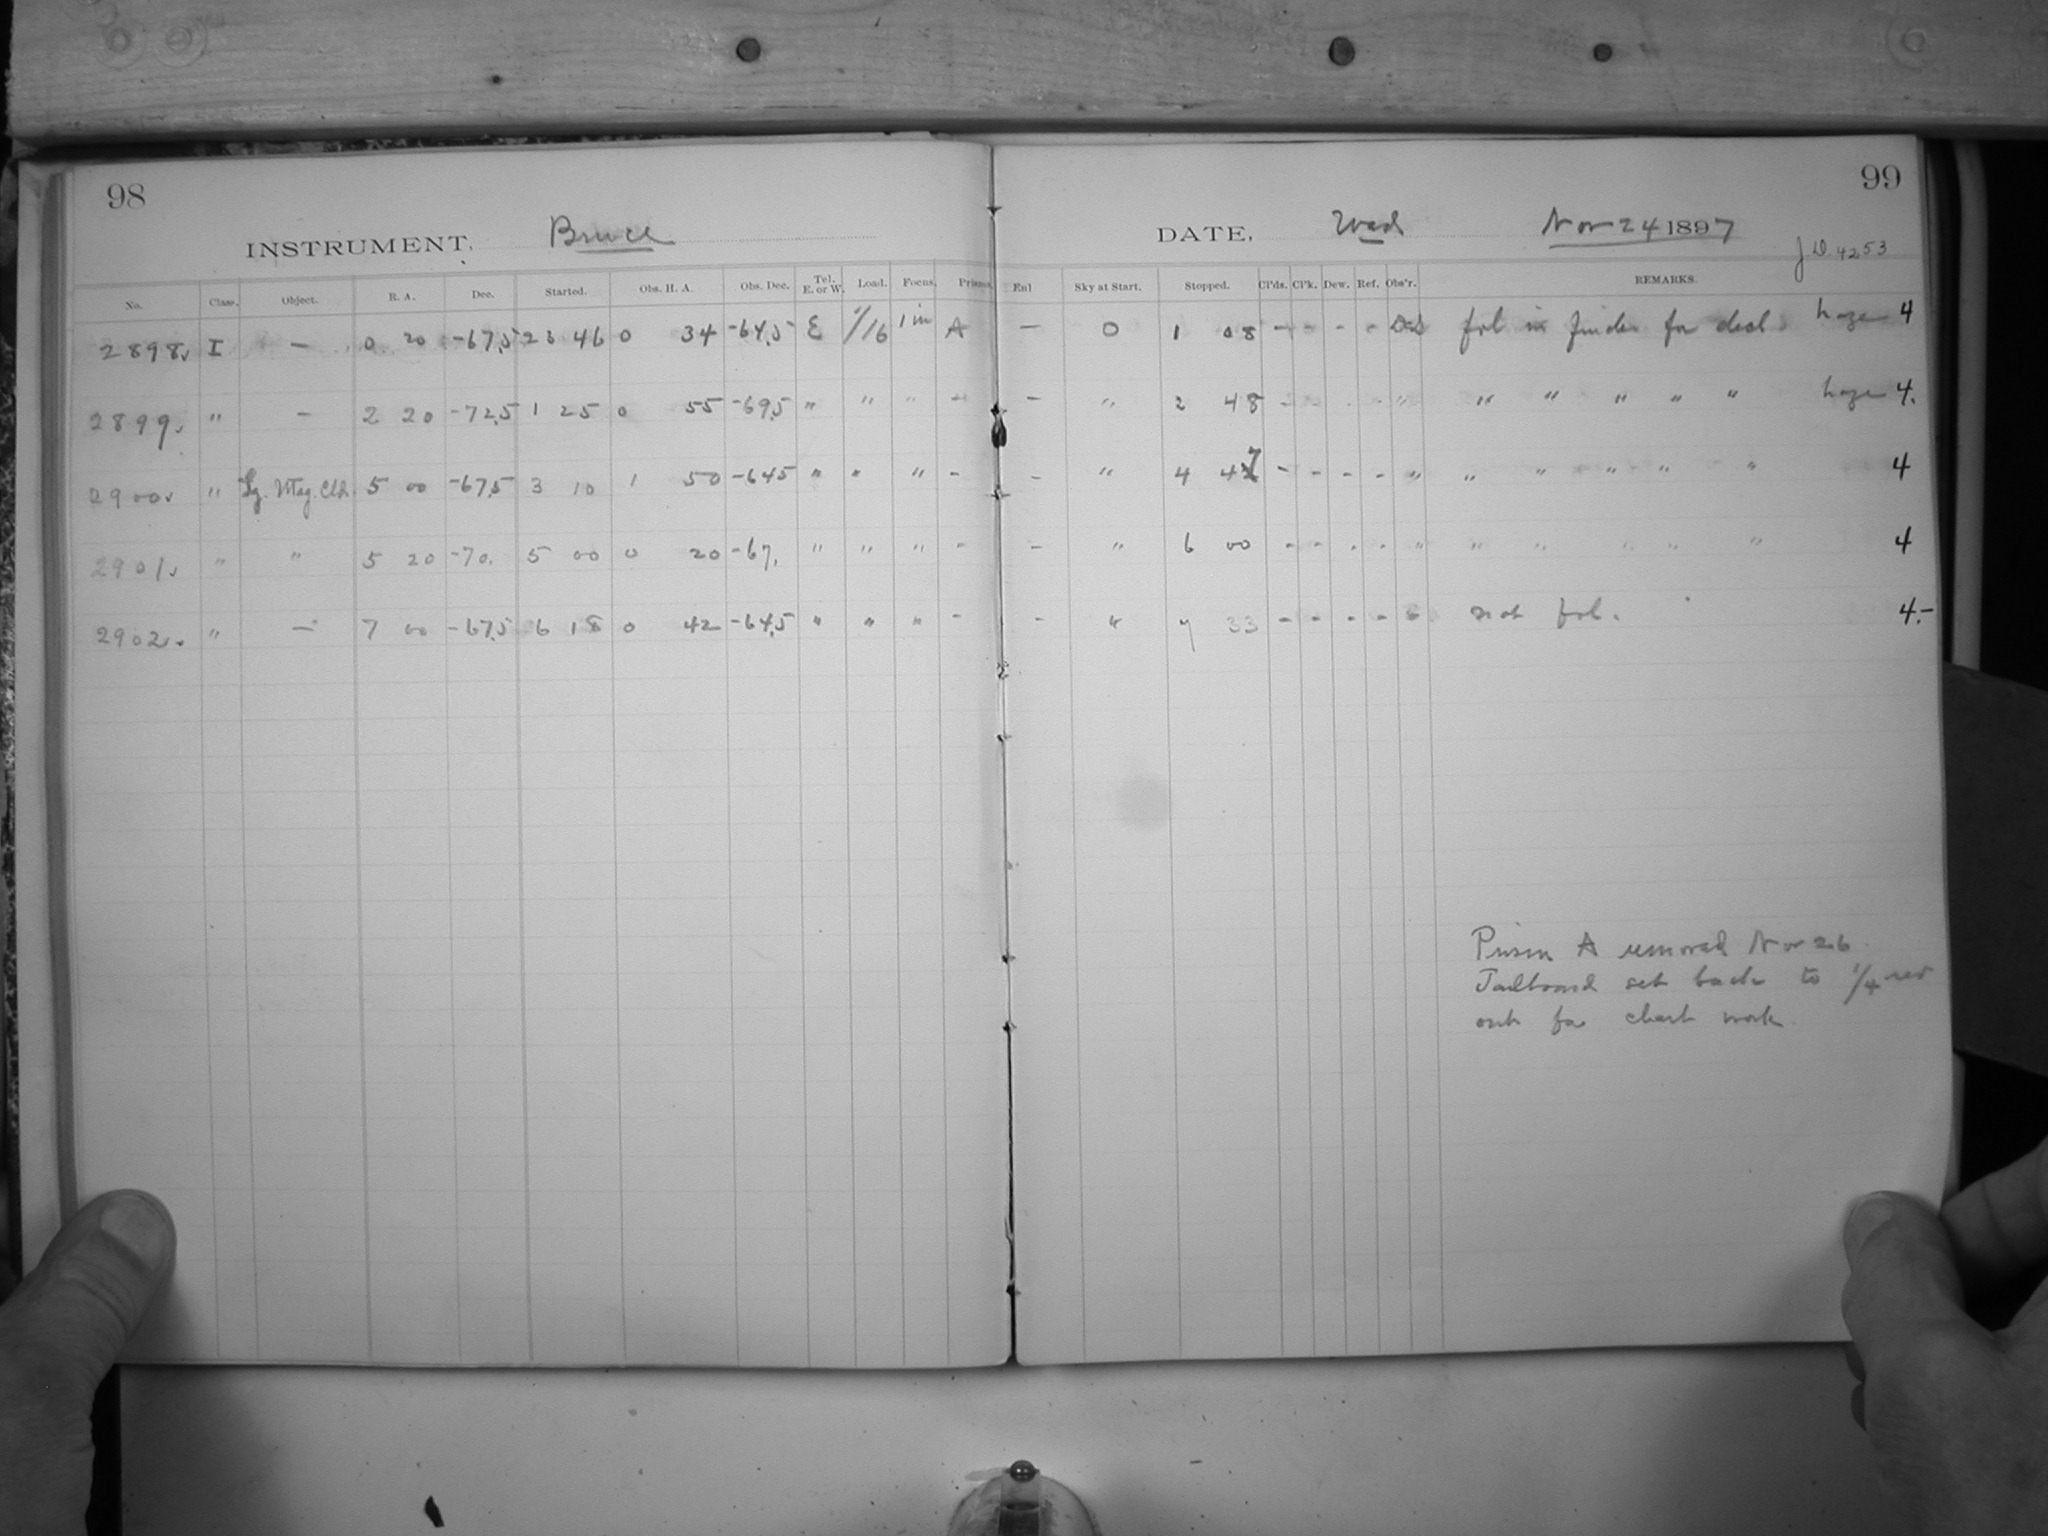 98
INSTRUMENT, Bruce
No. Class. Object. R. A. Dec. Started. Obs. H. A. Obs. Dec. Tel. E. or W. Load. Focus. Prisms.
2898. I — 0 20 -67.5 23 46 0 34 -64.5 E 1/16 1 in A
2899. " — 2 20 -72.5 1 25 0 55 -69.5 " " " -
2900. " Lg. Mag. Cld. 5 00 -67.5 3 10 1 50 -64.5 " " " -
2901. " " 5 20 -70. 5 00 0 20 -67. " " " -
2902. " — 7 00 -67.5 6 18 0 42 -64.5 " " " -
99
DATE, Wed Nov 24 1897
J D 4253
Enl Sky at Start. Stopped. Cl'ds. Cl'k. Dew. Ref. Obs'r. REMARKS.
— 0 1 08 - - - - fol in finder for decl. haze 4
— " 2 48 - - - - " " " " " " haze 4.
- " 4 47 - - - - " " " " " " 4
- " 6 00 - - - - " " " " " " 4
- " 7 33 - - - - " not fol. 4.-
Prism A removed Nov 26.
Tailboard set back to 1/4 rev
out for chart work